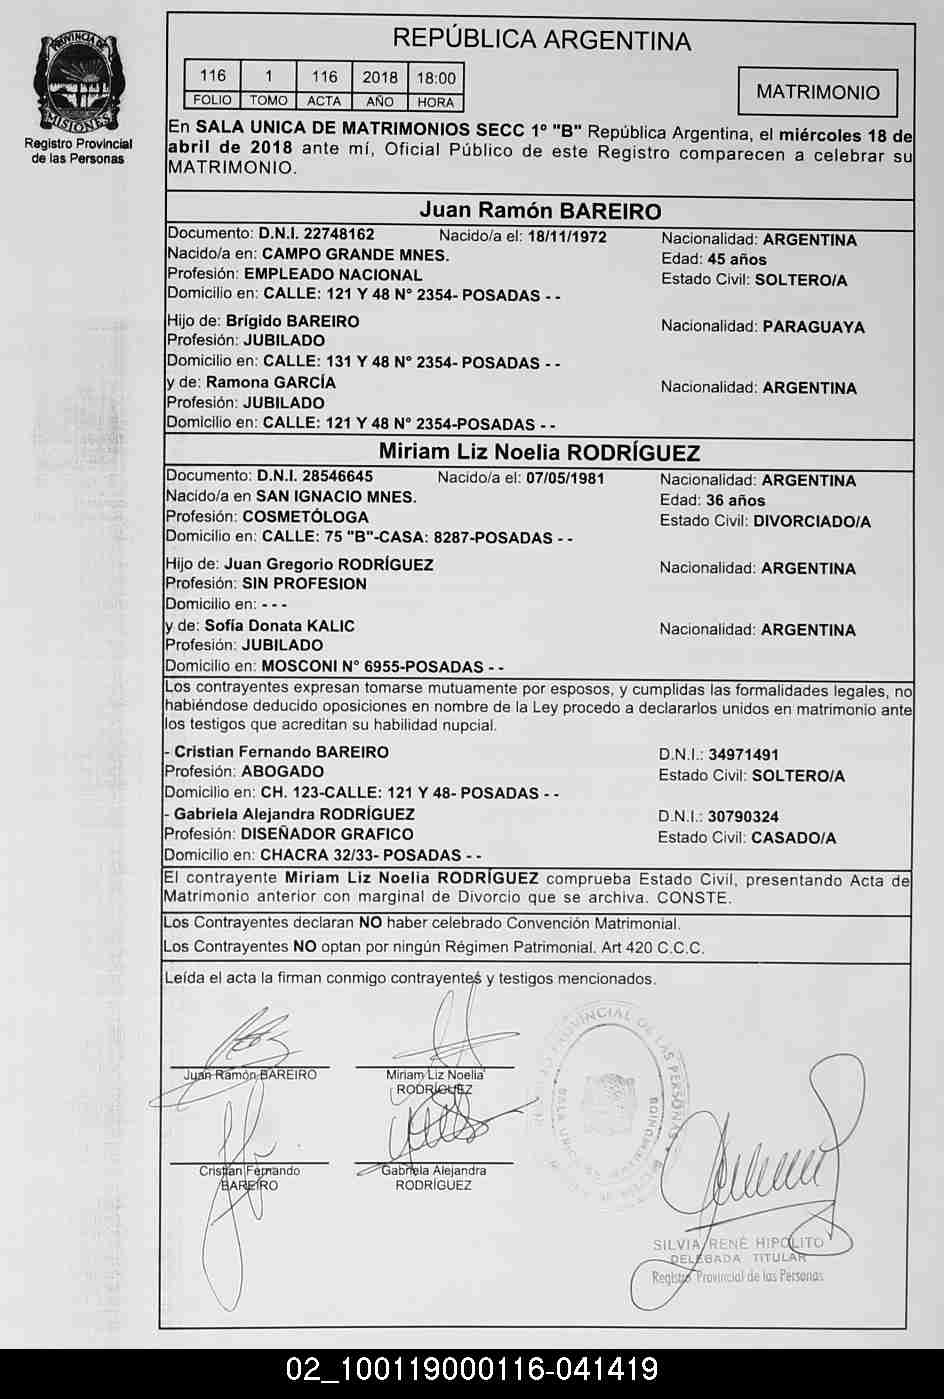 PROVINCIA DE
MISIONES
Registro Provincial
de las Personas
REPÚBLICA ARGENTINA
116 1 116 2018 18:00
FOLIO TOMO ACTA AÑO HORA
MATRIMONIO
En SALA UNICA DE MATRIMONIOS SECC 1º "B" República Argentina, el miércoles 18 de
abril de 2018 ante mí, Oficial Público de este Registro comparecen a celebrar su
MATRIMONIO.
Juan Ramón BAREIRO
Documento: D.N.I. 22748162 Nacido/a el: 18/11/1972 Nacionalidad: ARGENTINA
Nacido/a en: CAMPO GRANDE MNES. Edad: 45 años
Profesión: EMPLEADO NACIONAL Estado Civil: SOLTERO/A
Domicilio en: CALLE: 121 Y 48 N° 2354- POSADAS - -
Hijo de: Brígido BAREIRO Nacionalidad: PARAGUAYA
Profesión: JUBILADO
Domicilio en: CALLE: 131 Y 48 N° 2354- POSADAS - -
y de: Ramona GARCÍA Nacionalidad: ARGENTINA
Profesión: JUBILADO
Domicilio en: CALLE: 121 Y 48 N° 2354-POSADAS - -
Miriam Liz Noelia RODRÍGUEZ
Documento: D.N.I. 28546645 Nacido/a el: 07/05/1981 Nacionalidad: ARGENTINA
Nacido/a en SAN IGNACIO MNES. Edad: 36 años
Profesión: COSMETÓLOGA Estado Civil: DIVORCIADO/A
Domicilio en: CALLE: 75 "B"-CASA: 8287-POSADAS - -
Hijo de: Juan Gregorio RODRÍGUEZ Nacionalidad: ARGENTINA
Profesión: SIN PROFESION
Domicilio en: - - -
y de: Sofía Donata KALIC Nacionalidad: ARGENTINA
Profesión: JUBILADO
Domicilio en: MOSCONI N° 6955-POSADAS - -
Los contrayentes expresan tomarse mutuamente por esposos, y cumplidas las formalidades legales, no
habiéndose deducido oposiciones en nombre de la Ley procedo a declararlos unidos en matrimonio ante
los testigos que acreditan su habilidad nupcial.
- Cristian Fernando BAREIRO D.N.I.: 34971491
Profesión: ABOGADO Estado Civil: SOLTERO/A
Domicilio en: CH. 123-CALLE: 121 Y 48- POSADAS - -
- Gabriela Alejandra RODRÍGUEZ D.N.I.: 30790324
Profesión: DISEÑADOR GRAFICO Estado Civil: CASADO/A
Domicilio en: CHACRA 32/33- POSADAS - -
El contrayente Miriam Liz Noelia RODRÍGUEZ comprueba Estado Civil, presentando Acta de
Matrimonio anterior con marginal de Divorcio que se archiva. CONSTE.
Los Contrayentes declaran NO haber celebrado Convención Matrimonial.
Los Contrayentes NO optan por ningún Régimen Patrimonial. Art 420 C.C.C.
Leída el acta la firman conmigo contrayentes y testigos mencionados.
Juan Ramón BAREIRO
Miriam Liz Noelia
RODRÍGUEZ
Cristian Fernando
BAREIRO
Gabriela Alejandra
RODRÍGUEZ
PROVINCIAL DE LAS PERSONAS
SILVIA RENÉ HIPOLITO
DELEGADA TITULAR
Registro Provincial de las Personas
02_100119000116-041419